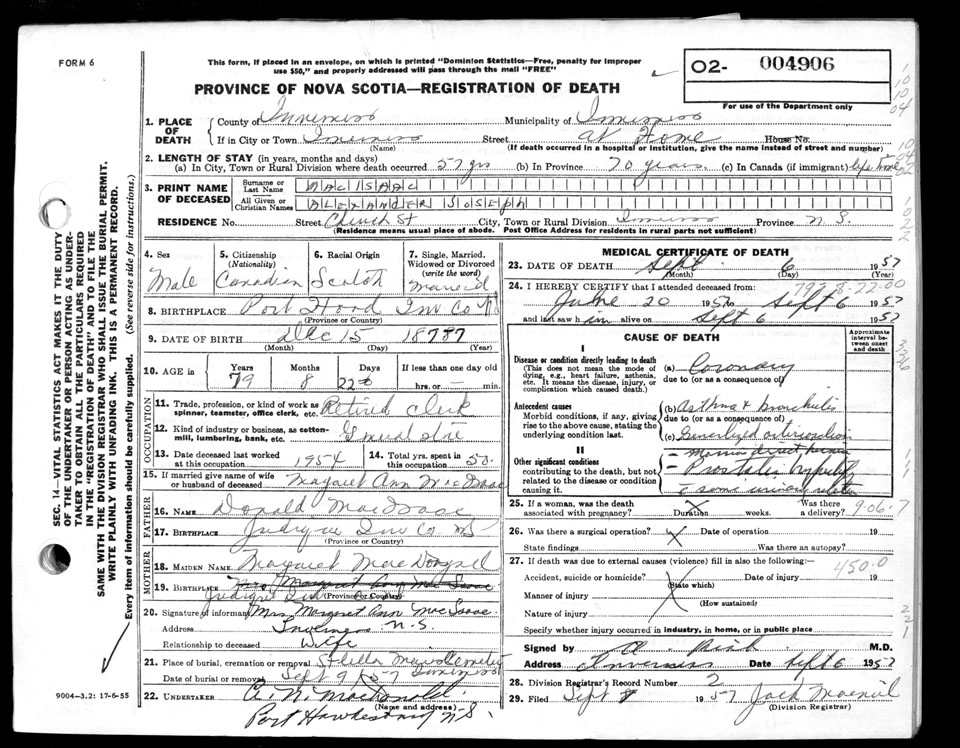 FORM 6
This form, if placed in an envelope, on which is printed "Dominion Statistics—Free, penalty for improper
use $50," and properly addressed will pass through the mail "FREE"
02- 004906
For use of the Department only
PROVINCE OF NOVA SCOTIA—REGISTRATION OF DEATH
1. PLACE OF DEATH County of Inverness Municipality of Inverness
If in City or Town Inverness Street at Home House No.
(Name) (If death occurred in a hospital or institution, give the name instead of street and number)
2. LENGTH OF STAY (in years, months and days)
(a) In City, Town or Rural Division where death occurred 57 yrs (b) In Province 70 years. (c) In Canada (if immigrant) life time
3. PRINT NAME OF DECEASED Surname or Last Name MAC ISAAC
All Given or Christian Names ALEXANDER JOSEPH
RESIDENCE No. Street Church St City, Town or Rural Division Inverness Province N.S.
(Residence means usual place of abode. Post Office Address for residents in rural parts not sufficient)
4. Sex 5. Citizenship (Nationality) 6. Racial Origin 7. Single, Married, Widowed or Divorced (write the word)
Male Canadian Scotch Married
8. BIRTHPLACE Port Hood Inv Co NS
(Province or Country)
9. DATE OF BIRTH Dec 15
(Month) (Day) (Year)
10. AGE in Years Months Days If less than one day
79 8 22 hrs. or — min.
OCCUPATION
11. Trade, profession, or kind of work as spinner, teamster, office clerk, etc. Retired clerk
12. Kind of industry or business, as cotton-mill, lumbering, bank, etc. General Store
13. Date deceased last worked at this occupation 1954 14. Total yrs. spent in this occupation 50.
15. If married give name of wife or husband of deceased Margaret Ann MacIsaac
FATHER
16. NAME Donald MacIsaac
17. BIRTHPLACE Judique Inv Co NS
(Province or Country)
MOTHER
18. MAIDEN NAME Margaret MacDougall
19. BIRTHPLACE Mrs Margaret Ann MacIsaac
Judique Inv (Province or Country)
20. Signature of informant Mrs. Margaret Ann MacIsaac
Address Inverness N.S.
Relationship to deceased Wife
21. Place of burial, cremation or removal
Date of burial or removal Sept 9 /57 Inverness
22. UNDERTAKER A. N. MacDonald
(Name and address)
Port Hawkesbury N.S.
9004—3.2: 17-6-55
SEC. 14—VITAL STATISTICS ACT MAKES IT THE DUTY
OF THE UNDERTAKER OR PERSON ACTING AS UNDER-
TAKER TO OBTAIN ALL THE PARTICULARS REQUIRED
IN THE "REGISTRATION OF DEATH" AND TO FILE THE
SAME WITH THE DIVISION REGISTRAR WHO SHALL ISSUE THE BURIAL PERMIT.
WRITE PLAINLY WITH UNFADING INK. THIS IS A PERMANENT RECORD.
Every item of information should be carefully supplied. (See reverse side for instructions.)
MEDICAL CERTIFICATE OF DEATH
23. DATE OF DEATH Sept 6 1957
(Month) (Day) (Year)
24. I HEREBY CERTIFY that I attended deceased from:
June 20 1957 to Sept 6 1957
and last saw him alive on Sept 6 1957
CAUSE OF DEATH
Approximate interval between onset and death
I
Disease or condition directly leading to death
(This does not mean the mode of dying, e.g., heart failure, asthenia, etc. It means the disease, injury, or complication which caused death.)
(a) Coronary
due to (or as a consequence of)
Antecedent causes
Morbid conditions, if any, giving rise to the above cause, stating the underlying condition last.
(b) Asthma & bronchitis
due to (or as a consequence of)
(c) Generalized arteriosclerosis
II
Other significant conditions
contributing to the death, but not related to the disease or condition causing it.
25. If a woman, was the death associated with pregnancy? Duration weeks. Was there a delivery?
26. Was there a surgical operation? Date of operation 19
State findings Was there an autopsy?
27. If death was due to external causes (violence) fill in also the following:—
450.0
Accident, suicide or homicide? (State which) Date of injury 19
Manner of injury (How sustained)
Nature of injury
Specify whether injury occurred in industry, in home, or in public place
Signed by M.D.
Address Inverness Date Sept 6 1957
28. Division Registrar's Record Number 2
29. Filed Sept 1957 Jack MacNeil
(Division Registrar)